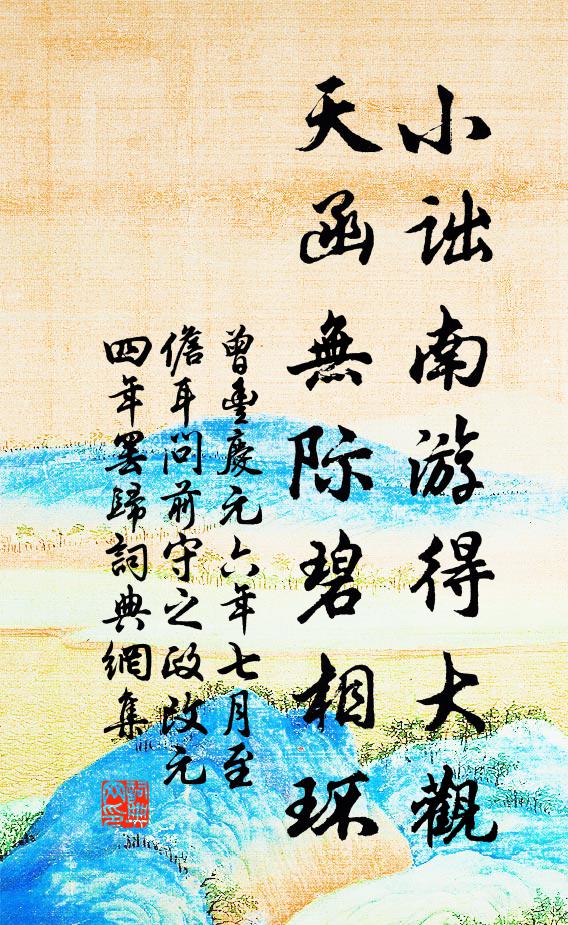 小詘南游得大觀
天函無際碧相環
曾豐慶元六年七月至
儋耳問前守之政改元
四年罢歸詞典網集